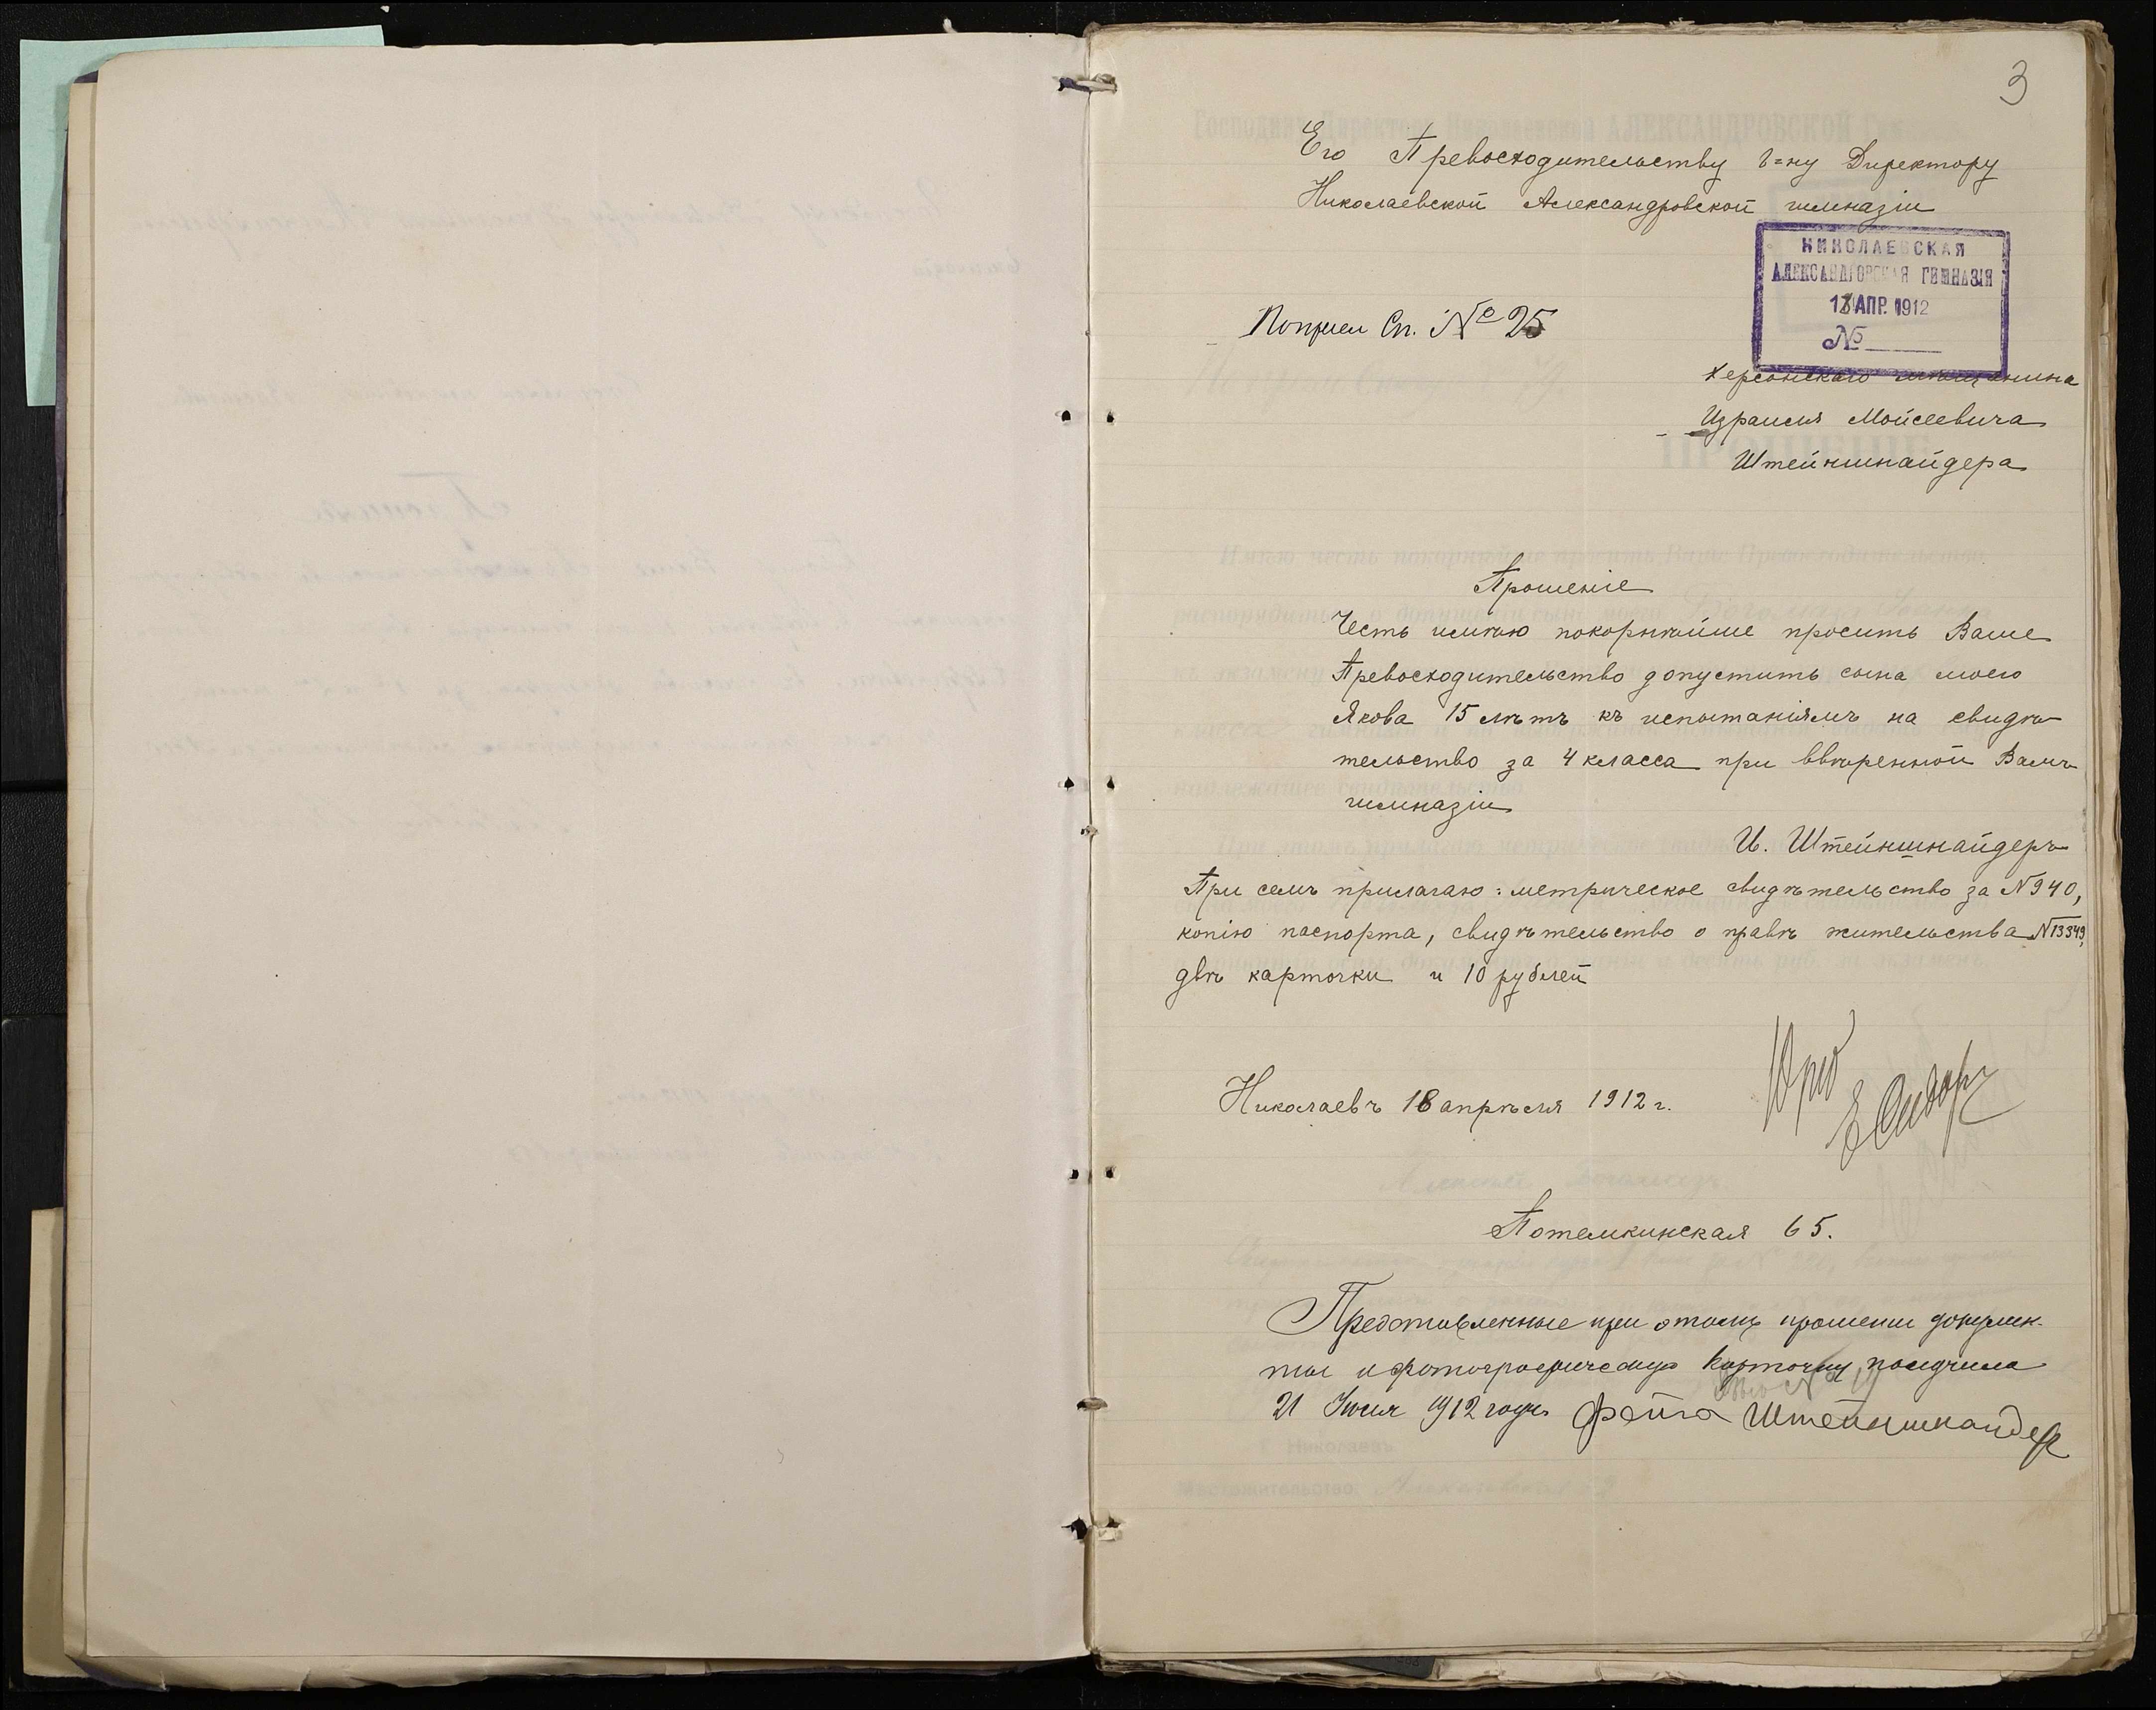 3
Его Превосходительству Г=ну Директору
Николаевской Александровской гимназіи
НИКОЛАЕВСКАЯ
АЛЕКСАНДРОВСКАЯ ГИМНАЗІЯ
18 АПР. 1912
№
Сп. № 25
Херсонскаго мѣщанина
Израиля Мойсеевича
Штейншнайдера
Прошеніе
Честь имѣю покорнѣйше просить Ваше
Превосходительство допустить сына моего
Якова 15 лѣтъ къ испытаніямъ на свидѣ
тельство за 4 класса при ввѣренной Вамъ
гимназіи
И. Штейншнайдеръ
При семъ прилагаю: метрическое свидѣтельство за N 940,
копію паспорта, свидѣтельство о правѣ жительства N 13349,
двѣ карточки и 10 рублей
Николаевъ 18 апрѣля 1912 г.
Потемкинская 65.
Представленные при этомъ прошении докумен-
ты и фотографическую карточку получила
21 Июля 1912 года Фейга Штейншнайдер